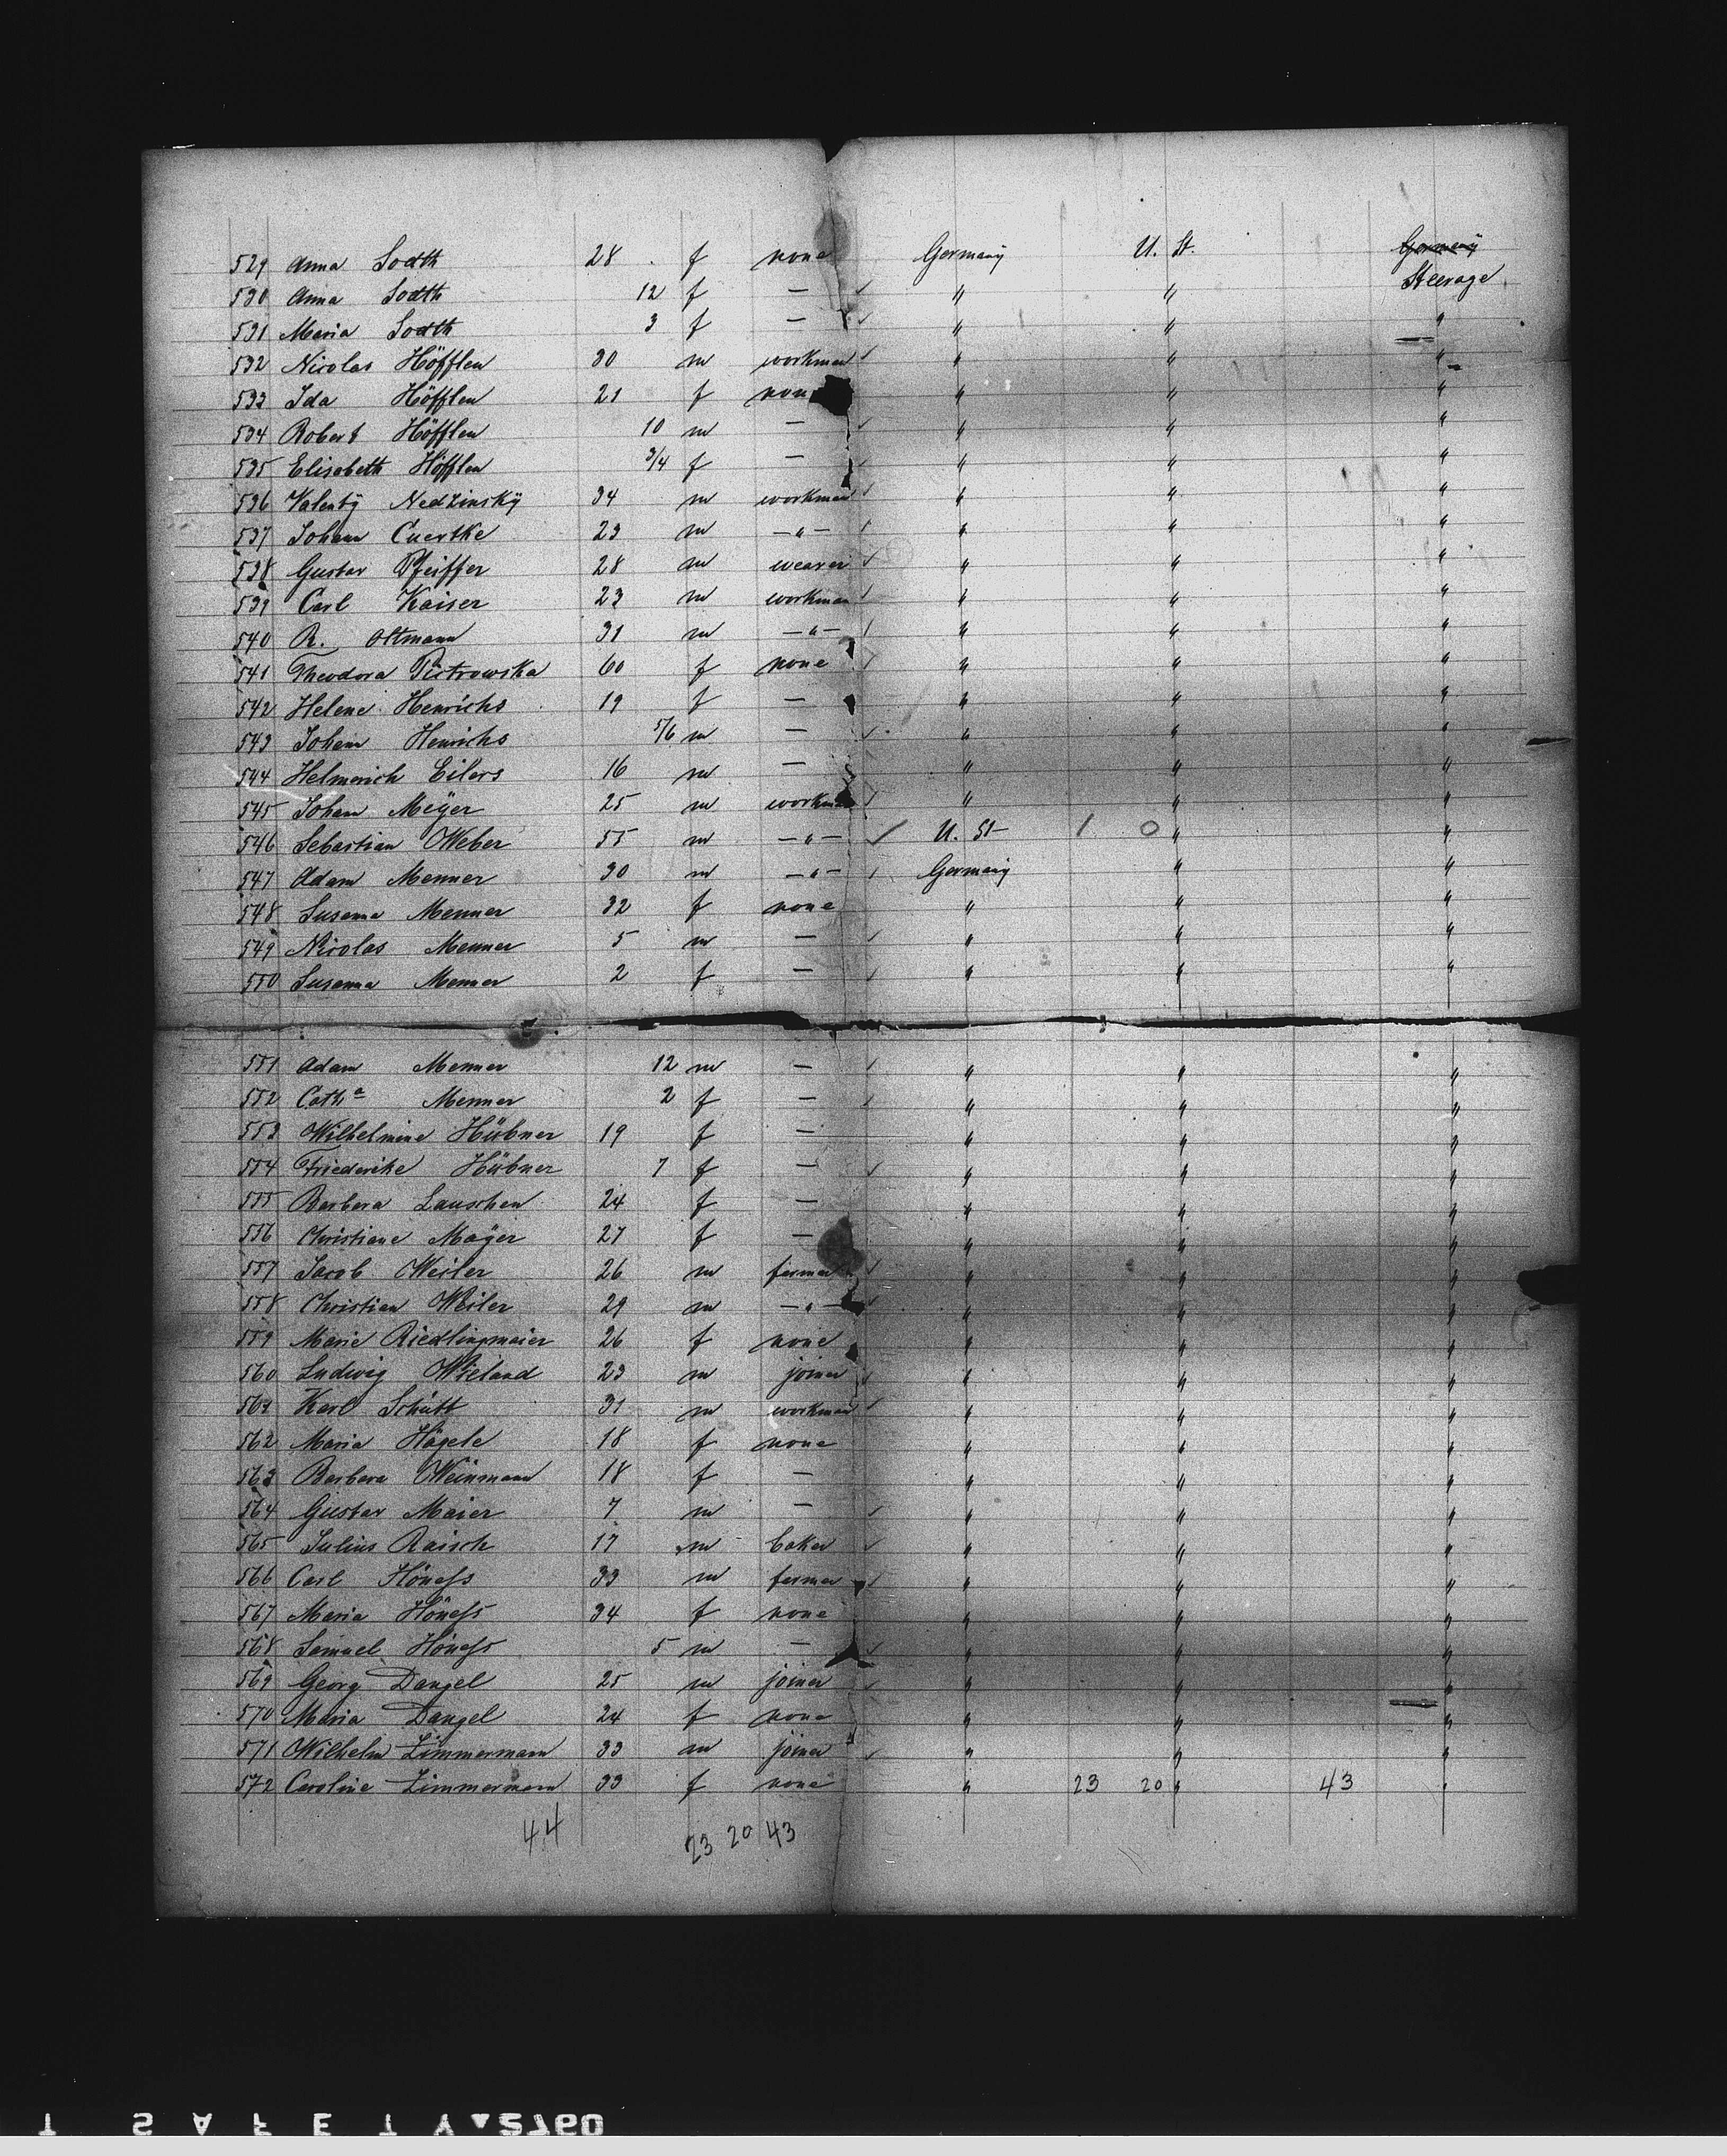 529 Anna Sodth 28 f none Germany U. St. Germany
Steerage
530 Anna Sodth 12 f — " "
531 Maria Sodth 3 f — " " "
532 Nicolas Höfflen 30 m workman " " "
533 Ida Höfflen 21 f none " " "
534 Robert Höfflen 10 m — " " "
535 Elisabeth Höfflen 3/4 f — " " "
536 Valenty Nedzinskÿ 34 m workman " " "
537 Johann Cuertke 23 m —"— " " "
538 Gustav Pfeiffer 28 m weaver " " "
539 Carl Kaiser 23 m workman " " "
540 R. Oltmann 31 m —"— " " "
541 Theodora Pietrowska 60 f none " " "
542 Helene Henrichs 19 f — " " "
543 Johann Henrichs 5/6 m — " " "
544 Helmerich Eilers 16 m — " " "
545 Johann Meÿer 25 m workman " " "
546 Sebastian Weber 55 m —"— U. St 1 0 " "
547 Adam Menner 30 m —"— Germany " "
548 Susanna Menner 32 f none " " "
549 Nicolas Menner 5 m — " " "
550 Susanna Menner 2 f — " " "
551 Adam Menner 12 m — " " "
552 Catha Menner 2 f — " " "
553 Wilhelmine Hübner 19 f — " " "
554 Friederike Hübner 7 f — " " "
555 Barbara Lauschen 24 f — " " "
556 Christiane Mayer 27 f — " " "
557 Jacob Weiler 26 m farmer " " "
558 Christian Weiler 29 m —"— " " "
559 Marie Riedlingmaier 26 f none " " "
560 Ludwig Wieland 23 m joiner " " "
561 Karl Schütt 31 m workman " " "
562 Maria Hägele 18 f none " " "
563 Barbara Weinmann 18 f — " " "
564 Gustav Maier 7 m — " " "
565 Julius Raisch 17 m baker " " "
566 Carl Höness 33 m farmer " " "
567 Maria Höness 34 f none " " "
568 Samuel Höness 5 m — " " "
569 Georg Dangel 25 m joiner " " "
570 Maria Dangel 24 f none " " "
571 Wilhelm Zimmermann 33 m joiner " " "
572 Caroline Zimmermann 33 f none " 23 20 " 43 "
44 23 20 43
T SAFETY▲5760